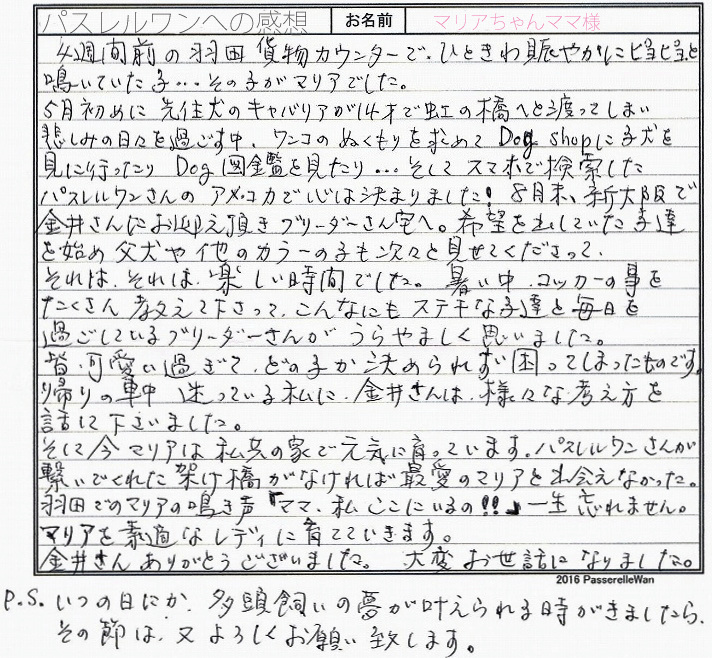 パスレルワンへの感想 お名前 マリアちゃんママ様
4週間前の羽田貨物カウンターで、ひときわ賑やかにピヨピヨと
鳴いていた子…その子がマリアでした。
5月初めに先住犬のキャバリアが14才で虹の橋へと渡ってしまい
悲しみの日々を過ごす中、ワンコのぬくもりを求めて Dog shopに子犬を
見に行ったり Dog図鑑を見たり…そして スマホで検索した
パスレルワンさんの アメ・コカで心は決まりました! 8月末、新大阪で
金井さんにお迎え頂き ブリーダーさん宅へ。希望を出していた子達
を始め 父犬や他のカラーの子も次々と見せてくださって、
それは、それは、楽しい時間でした。暑い中、コッカーの事を
たくさん 教えて下さって、こんなにも ステキな子達と毎日を
過ごしているブリーダーさんが うらやましく思いました。
皆、可愛い過ぎて、どの子か決められずに困ってしまったものです。
帰りの車中 迷っている私に、金井さんは、様々な考え方を
話して下さいました。
そして今 マリアは私共の家で元気に育っています。パスレルワンさんが
繋いでくれた架け橋がなければ最愛のマリアと出会えなかった。
羽田でのマリアの鳴き声「ママ、私ここにいるの!!」一生忘れません。
マリアを素適なレディに育てていきます。
金井さん ありがとうございました。 大変お世話になりました。
2016 PasserelleWan
P.S. いつの日にか、多頭飼いの夢が叶えられる時がきましたら、
その節は、又よろしくお願い致します。